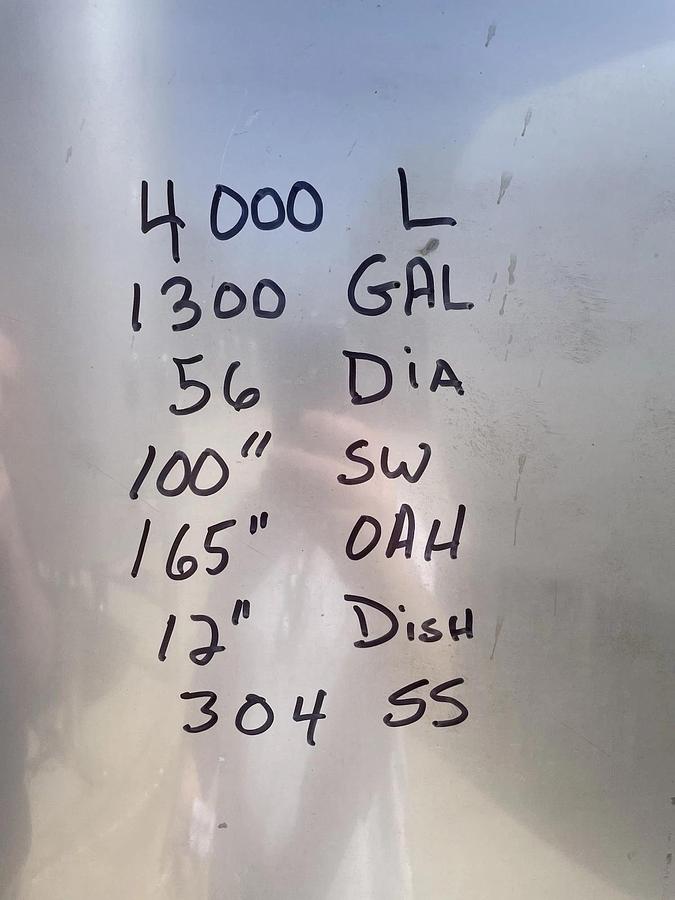 4000 L
1300 GAL
56 DiA
100" SW
165" OAH
12" DisH
304 SS